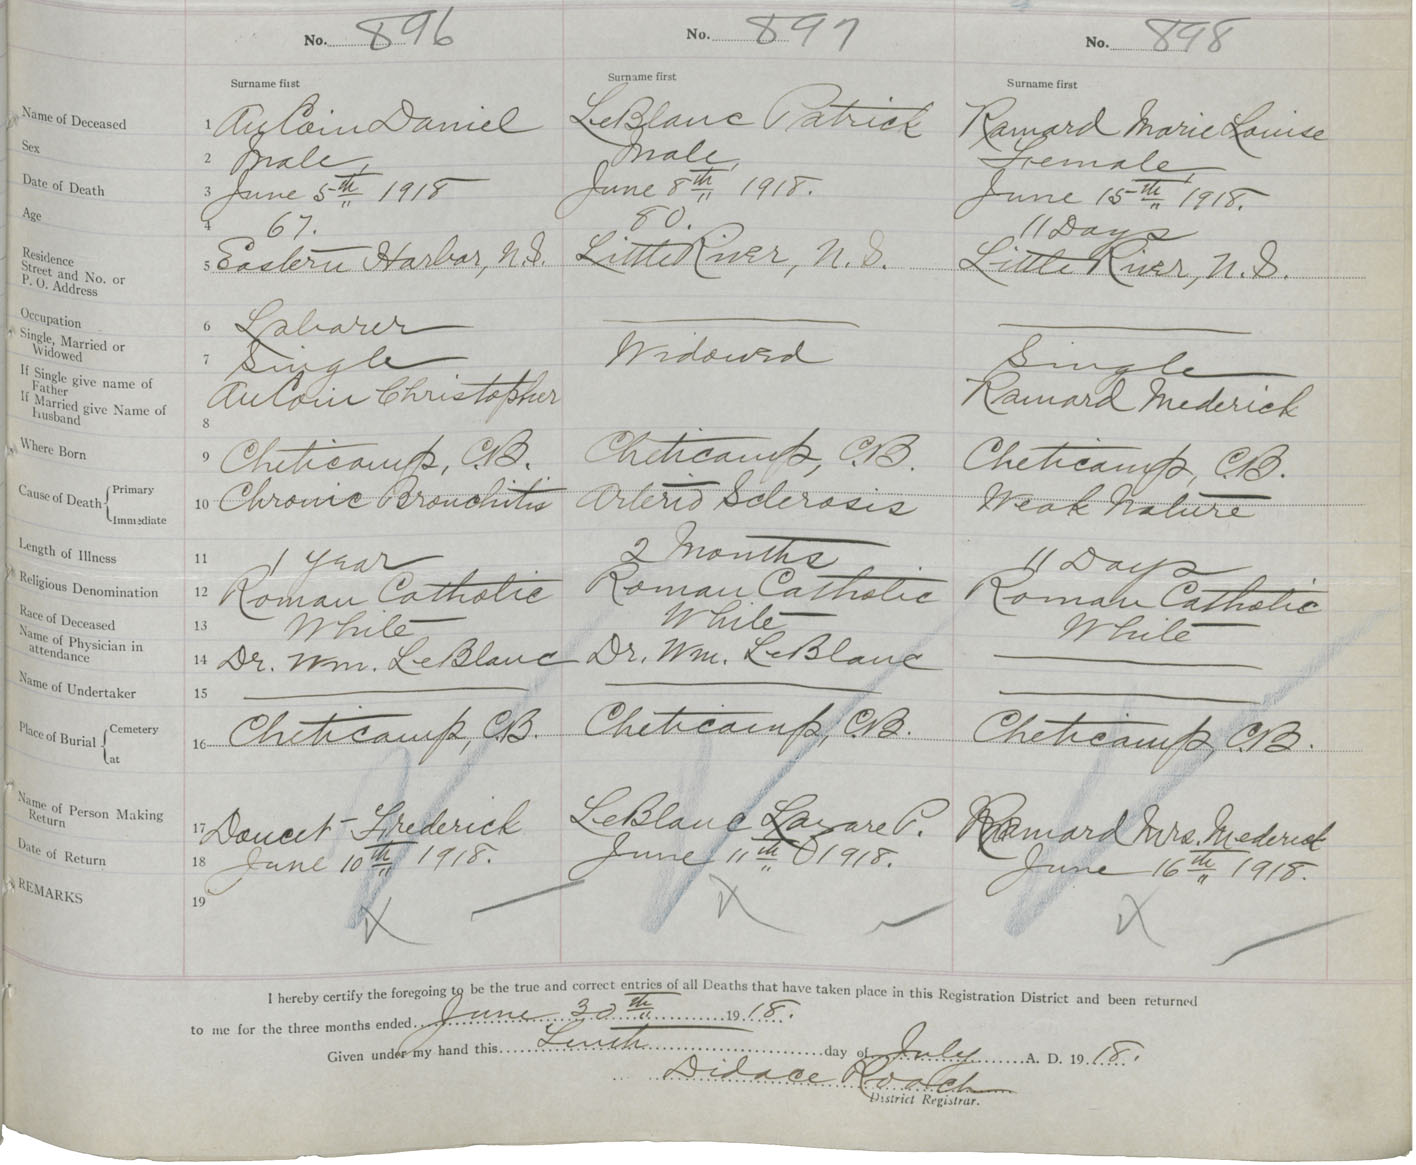 No. 896 No. 897 No. 898
Surname first Surname first Surname first
Name of Deceased 1 AuCoin Daniel LeBlanc Patrick Ramard Marie Louise
Sex 2 Male, Male, Female,
Date of Death 3 June 5th 1918 June 8th 1918. June 15th 1918.
Age 4 67. 80. 11 Days
Residence Street and No. or P. O. Address 5 Eastern Harbor, N.S. Little River, N.S. Little River, N.S.
Occupation 6 Laborer
Single, Married or Widowed 7 Single Widowed Single
If Single give name of Father If Married give Name of husband 8 AuCoin Christopher Ramard Mederick
Where Born 9 Cheticamp, C.B. Cheticamp, C.B. Cheticamp, C.B.
Cause of Death { Primary Immediate 10 Chronic Bronchitis Arterio Sclerosis Weak Nature
Length of Illness 11 1 Year 2 Months 11 Days
Religious Denomination 12 Roman Catholic Roman Catholic Roman Catholic
Race of Deceased 13 White White White
Name of Physician in attendance 14 Dr. Wm. LeBlanc Dr. Wm. LeBlanc
Name of Undertaker 15
Place of Burial { Cemetery at 16 Cheticamp, C.B. Cheticamp, C.B. Cheticamp, C.B.
Name of Person Making Return 17 Doucet Frederick LeBlanc Lazare P. Ramard Mrs. Mederick
Date of Return 18 June 10th 1918. June 11th 1918. June 16th 1918.
REMARKS 19
I hereby certify the foregoing to be the true and correct entries of all Deaths that have taken place in this Registration District and been returned
to me for the three months ended June 30th 1918.
Given under my hand this Tenth day of July A. D. 1918.
Didace Roach
District Registrar.